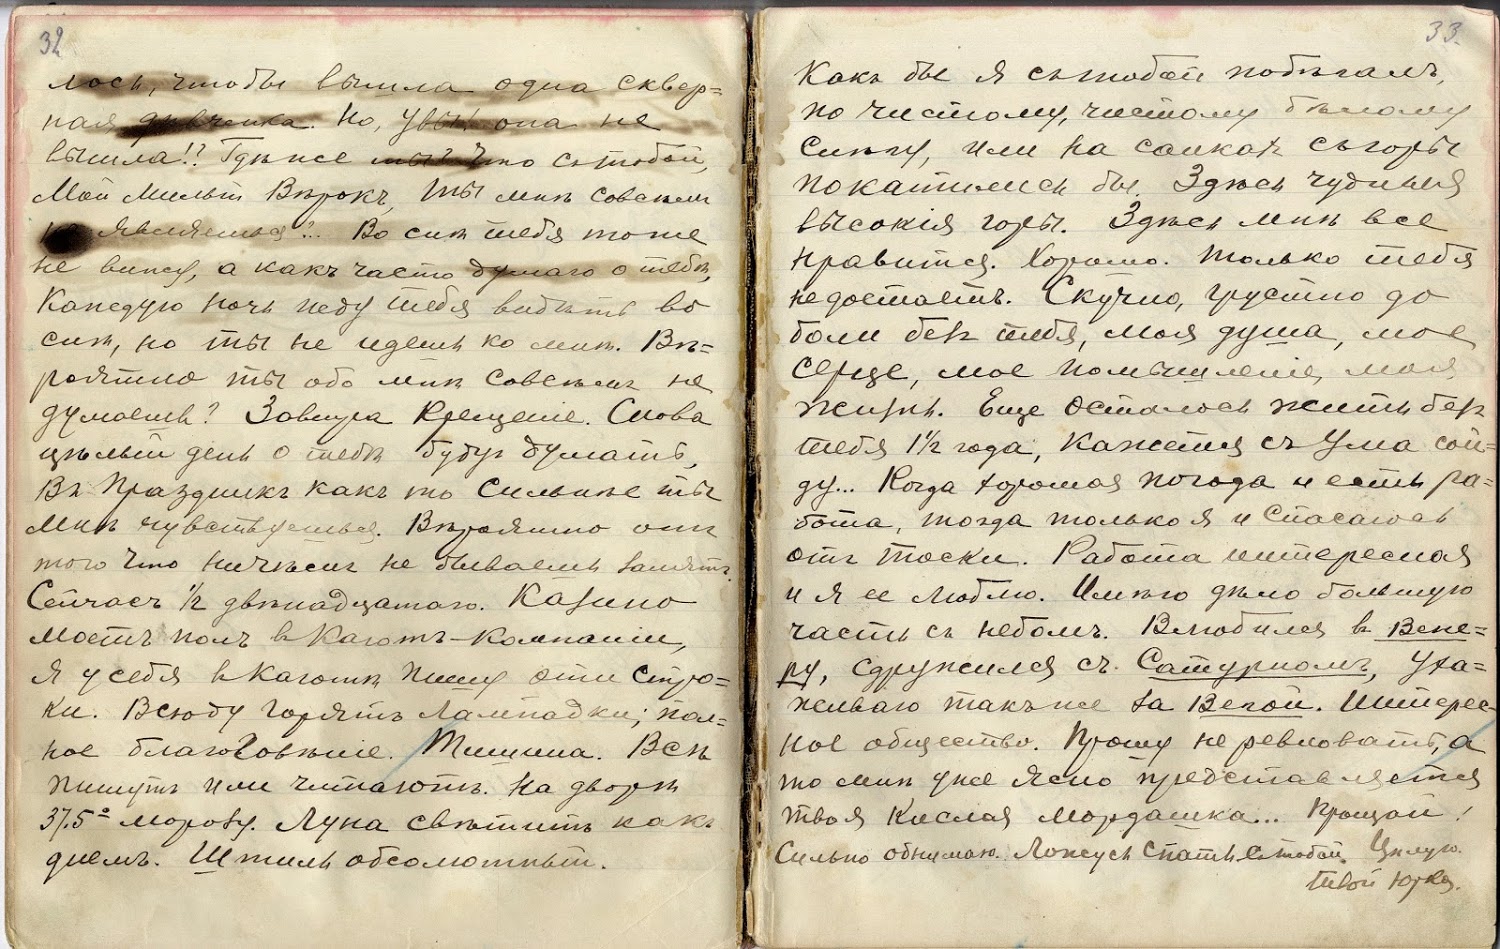 32
лось, чтобы вышла одна сквер=
ная дѣвченка. Но, увы! она не
вышла!? Гдѣ же ты? Что съ тобой,
Мой милый Вѣрокъ, ты мнѣ совсѣмъ
не являешься?.. Во снѣ тебя тоже
не вижу, а какъ часто думаю о тебѣ,
Каждую ночь жду тебя видѣть во
снѣ, но ты не идешь ко мнѣ. Вѣ=
роятно ты обо мнѣ совсѣмъ не
думаешь? Завтра Крещеніе. Снова
цѣлый день о тебѣ буду думать,
Въ праздникъ какъ то сильнѣе ты
мнѣ чувствуешься. Вѣроятно отъ
того что ничѣмъ не бываешь занятъ.
Сейчасъ 1/2 двѣнадцатаго. Казино
мостъ полъ в Каютъ-компаніи,
я у себя в каютѣ пишу эти стро=
ки. Всюду горятъ лампадки; пол=
ное благоговѣніе. Тишина. Всѣ
пишутъ или читаютъ. На дворѣ
37.5° морозу. Луна свѣтитъ какъ
днемъ. Штиль обсолютный.
33.
Какъ бы я съ тобой побѣгалъ,
по чистому, чистому бѣлому
снѣгу, или на санкахъ съ горы
покатились бы. Здѣсь чудныя
высокія горы. Здѣсь мнѣ все
нравится. Хорошо. Только тебя
недостаетъ. Скучно, грустно до
боли без тебя, моя душа, мое
серце, мое помышленіе, моя
жизнь. Еще осталось жить без
тебя 1 1/2 года, кажется съ ума сой=
ду... Когда хорошая погода и есть ра=
бота, тогда только я и спасаюсь
отъ тоски. Работа интересная
и я ее люблю. Имѣю дѣло большую
часть съ небомъ. Влюбился в Вене=
ру, сдружился съ Сатурномъ, уха=
живаю также за Вегой. Интерес=
ное общество. Прошу не ревновать, а
то мнѣ уже ясно представляется
твоя кислая мордашка... Прощай!
Сильно обнимаю. Ложусь спать с тобой. Цѣлую.
Твой Юрка.